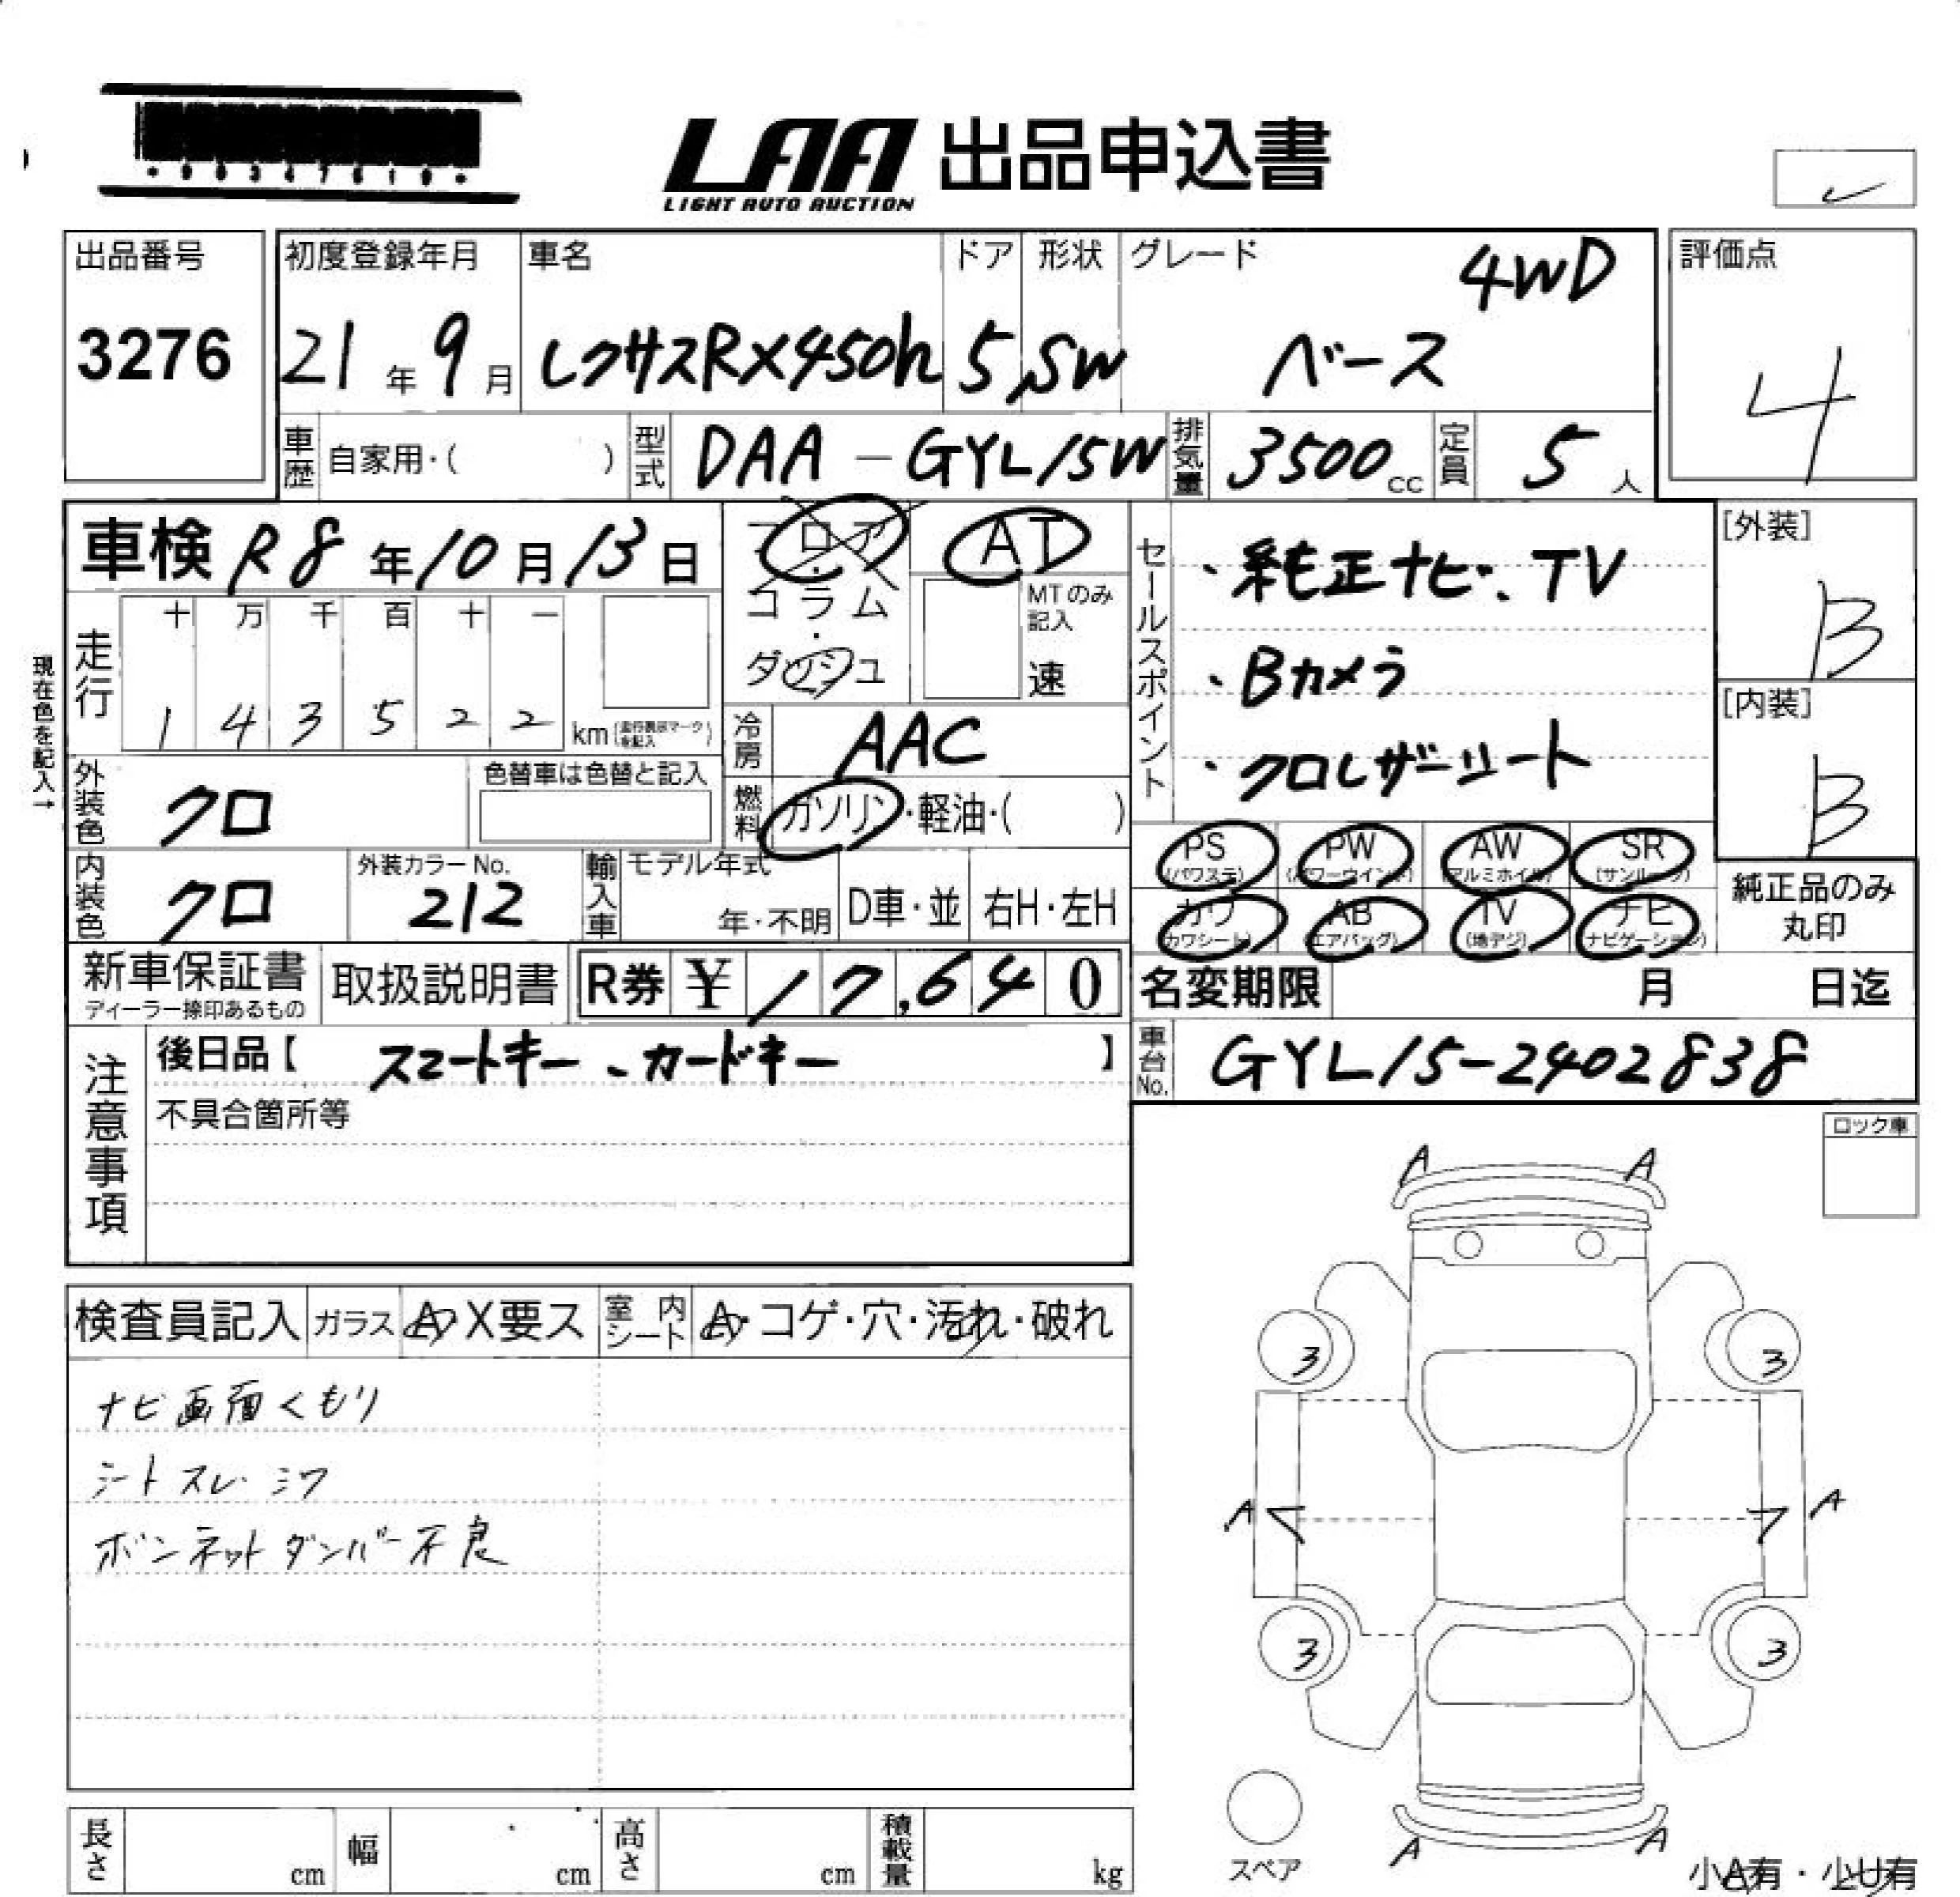 LAA 出品申込書
LIGHT AUTO AUCTION
出品番号
3276
初度登録年月
21年9月
車名
レクサスRX450h
ドア
5
形状
SW
グレード
4WD
ベース
評価点
4
車歴 自家用・( )
型式 DAA-GYL15W
排気量 3500cc
定員 5人
車検 R8年10月13日
フロア・コラム・ダッシュ
AT
MTのみ記入
速
セールスポイント
・純正ナビ、TV
・Bカメラ
・クロレザーシート
[外装]
B
[内装]
B
現在色を記入→
走行
十 万 千 百 十 一
1 4 3 5 2 2 km (走行表示マークを記入)
冷房 AAC
外装色 クロ
色替車は色替と記入
燃料 ガソリン・軽油・( )
PS (パワステ)
PW (パワーウインド)
AW (アルミホイル)
SR (サンルーフ)
カワ (カワシート)
AB (エアバッグ)
TV (地デジ)
ナビ (ナビゲーション)
純正品のみ
丸印
内装色 クロ
外装カラーNo.
212
輸入車
モデル年式
年・不明
D車・並
右H・左H
新車保証書
ディーラー捺印あるもの
取扱説明書
R券 ¥17,640
名変期限 月 日迄
注意事項
後日品【 スマートキー、カードキー 】
不具合箇所等
車台No. GYL15-2402838
ロック車
検査員記入
ガラス A X要ス
室内シート A・コゲ・穴・汚れ・破れ
ナビ画面くもり
シートスレ・シワ
ボンネットダンパー不良
A A
3 3
A A
3 3
A A
スペア
小A有・小U有
長さ cm
幅 cm
高さ cm
積載量 kg